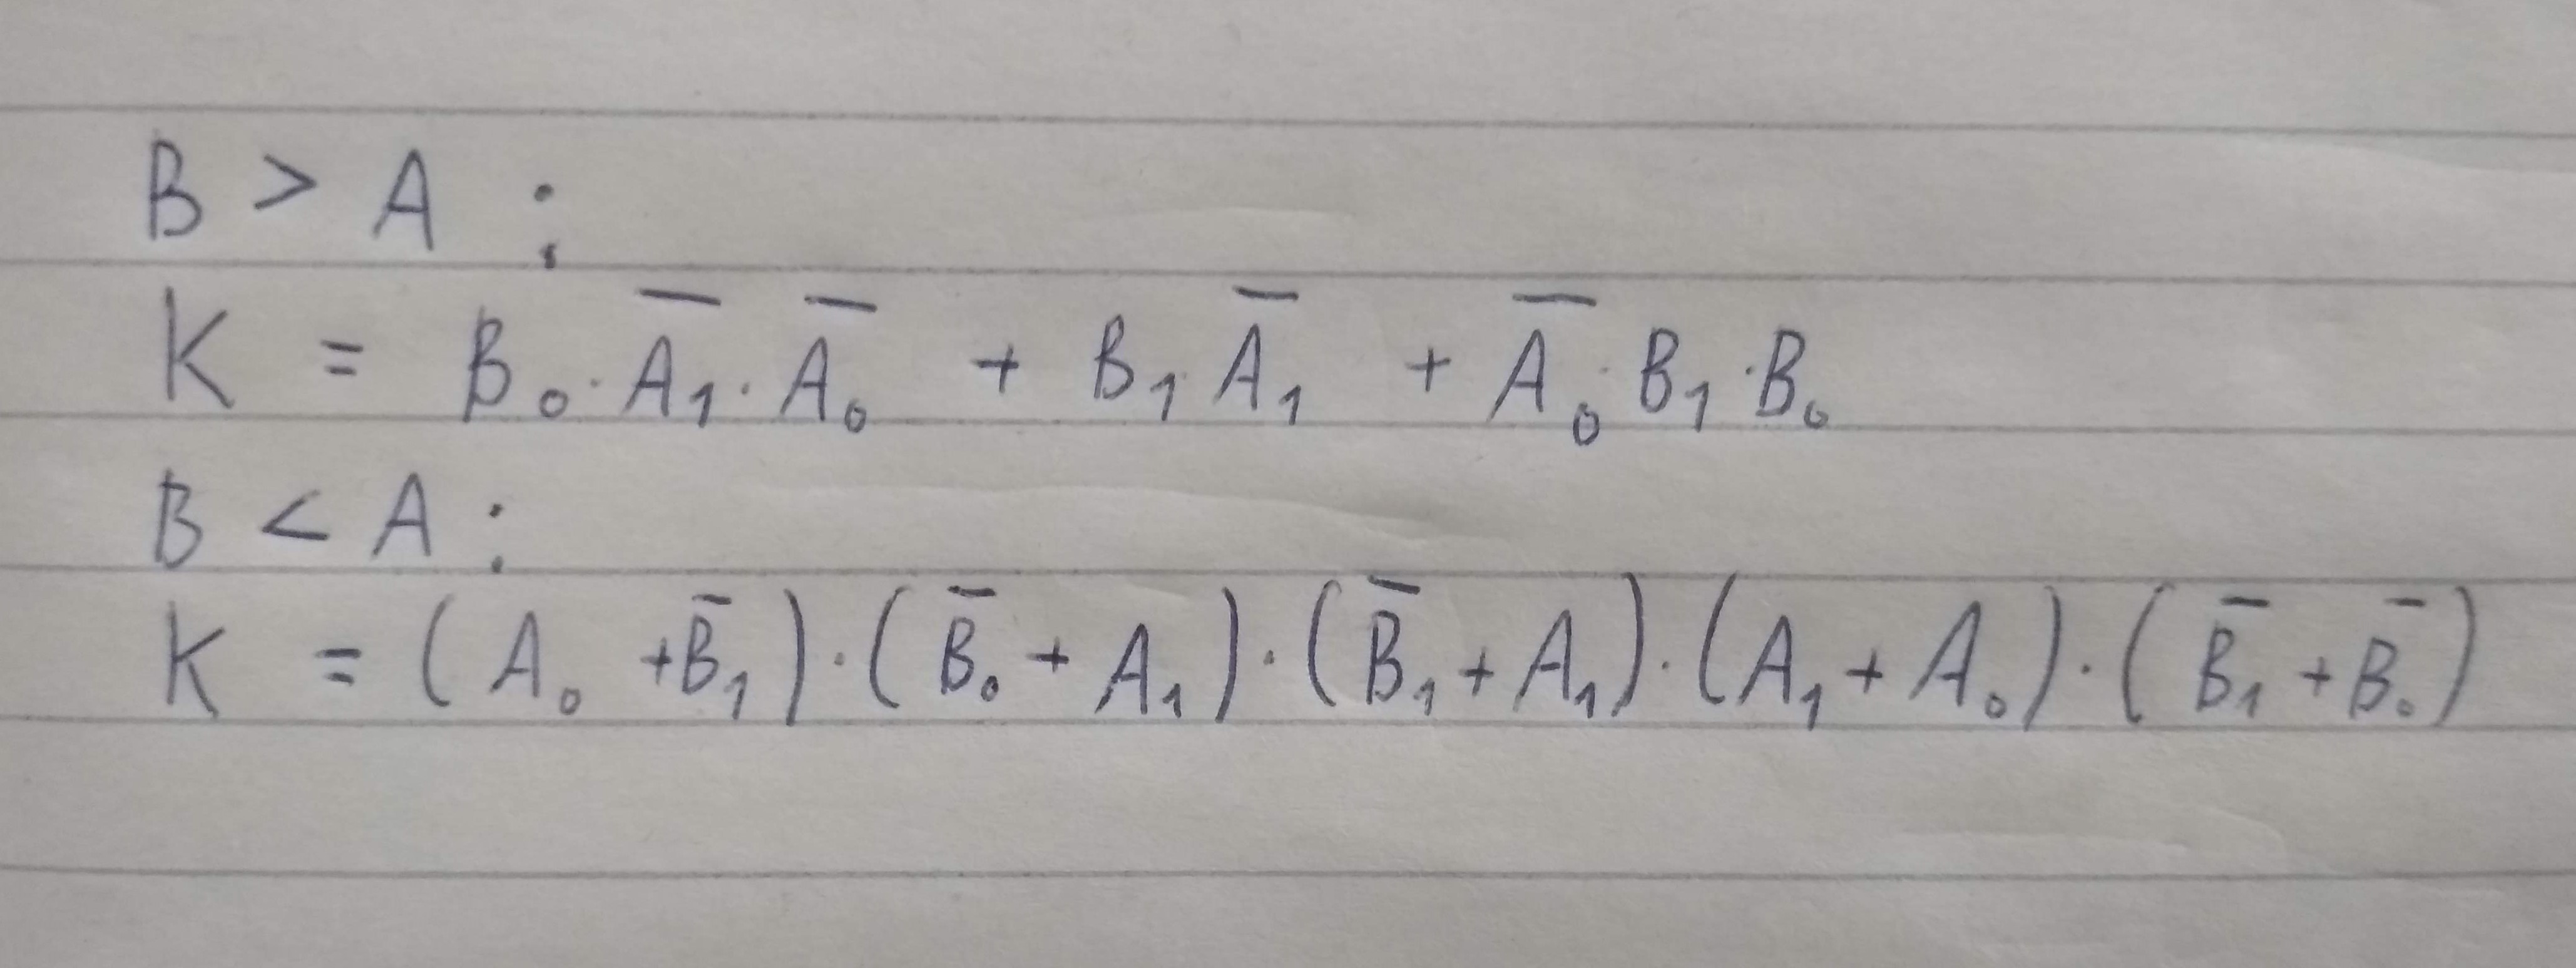 B > A :
K = B₀·A̅₁·A̅₀ + B₁·A̅₁ + A̅₀·B₁·B₀
B < A :
K = (A₀ + B̅₁)·(B̅₀ + A₁)·(B̅₁ + A₁)·(A₁ + A₀)·(B̅₁ + B̅₀)